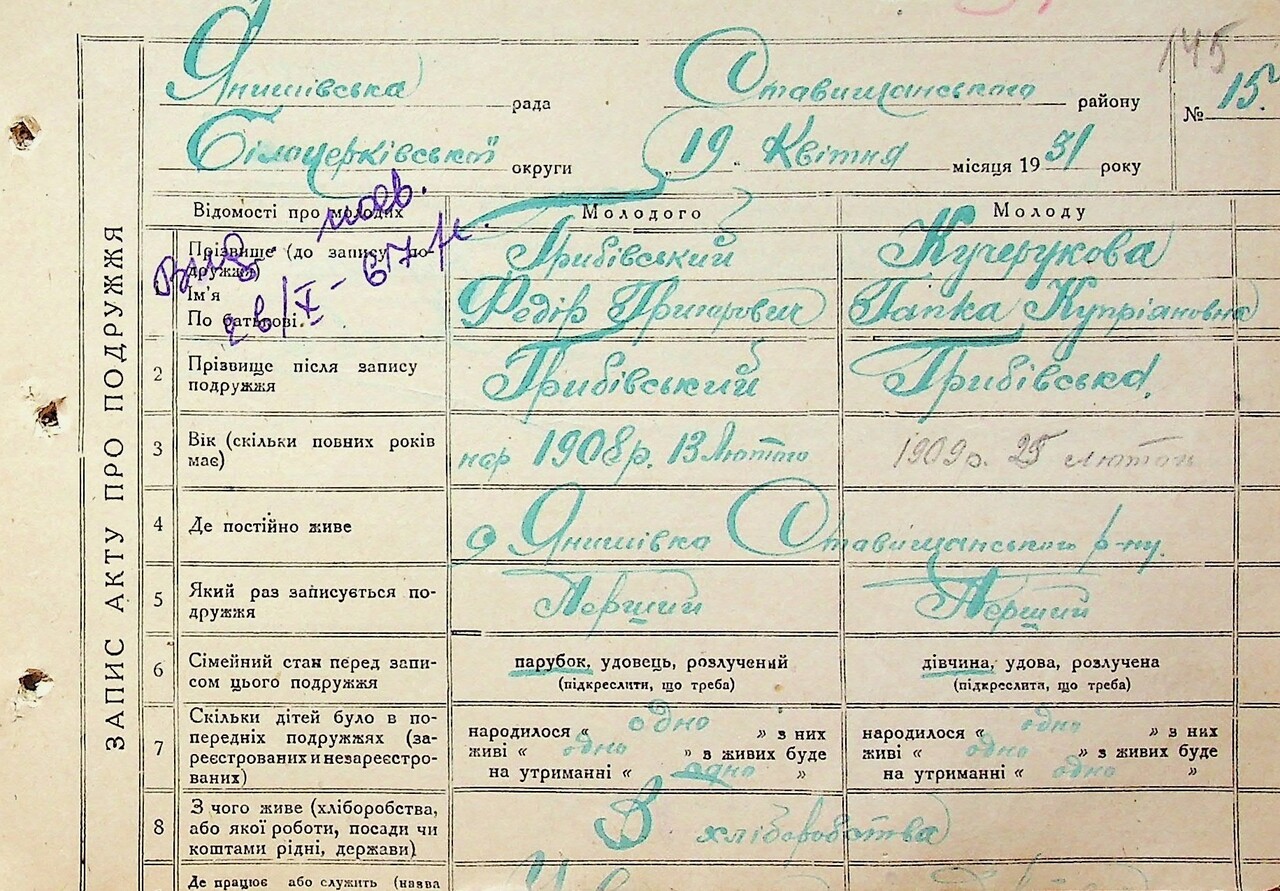 145
Янишівська рада Ставищанського району № 15.
Білоцерківської округи „ 19 „ Квітня місяця 19 31 року
ЗАПИС АКТУ ПРО ПОДРУЖЖЯ
Відомості про молодих Молодого Молоду
Прізвище (до запису по-
дружжя) Грибівський Кучерукова
Ім'я
По батькові Федір Григорович Гапка Купріяновна
2 Прізвище після запису
подружжя Грибівський Грибівська
3 Вік (скільки повних років
має) нар 1908р. 13 Лютого 1909р. 25 лютого
4 Де постійно живе с Янишівка Ставищанського р-ну.
5 Який раз записується по-
дружжя Перший Перший
6 Сімейний стан перед запи-
сом цього подружжя
парубок, удовець, розлучений
(підкреслити, що треба)
дівчина, удова, розлучена
(підкреслита, що треба)
7 Скільки дітей було в по-
передніх подружжях (за-
реєстрованих и незареєстро-
ваних)
народилося « одно » з них
живі « одно » з живих буде
на утриманні « одно »
народилося « одно » з них
живі « одно » з живих буде
на утриманні « одно »
8 З чого живе (хліборобства,
або якої роботи, посади чи
коштами рідні, держави) В хліборобства
Де працює або служить (назва